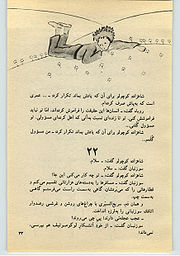 شاهزاده کوچولو برای آن که یادش بماند تکرار کرد: – ... عمری
است که به‌پاش صرف کرده‌ام.
روباه گفت: – انسان‌ها این حقیقت را فراموش کرده‌اند، اما تو نباید
فراموشش کنی. تو تا زنده‌ای نسبت به‌آنی که اهلی کرده‌ای مسؤولی. تو
مسؤول گلتی...
شاهزاده کوچولو برای آن که یادش بماند تکرار کرد: – من مسؤول
گلمم...
۲۲
شاهزاده کوچولو گفت: – سلام
سوزنبان گفت: – سلام.
شاهزاده کوچولو گفت: – تو چه کار می‌کنی این جا؟
سوزنبان گفت: – مسافرها را به‌دسته‌های هزارتائی تقسیم می‌کنم و
قطارهائی را که می‌بردشان گاهی به‌سمت راست می‌فرستم گاهی
به‌سمت چپ.
و همان دم، سریع‌السیری با چراغ‌های روشن و غرشی رعدوار
اتاقک سوزنبانی را به‌لرزه انداخت.
– عجب عجله‌ئی دارند! پی چی می‌روند؟
سوزنبان گفت: – از خود آتشکار لوکوموتیف هم بپرسی،
نمی‌داند!
۳۳